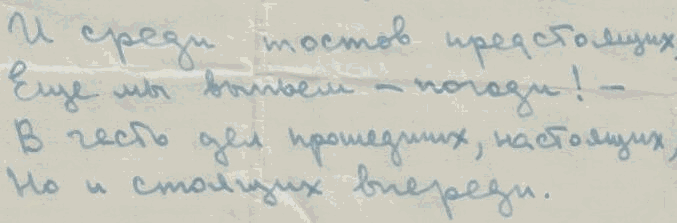 И среди тостов предстоящих,
Еще мы выпьем – погоди! –
В честь дел прошедших, настоящих,
Но и стоящих впереди.